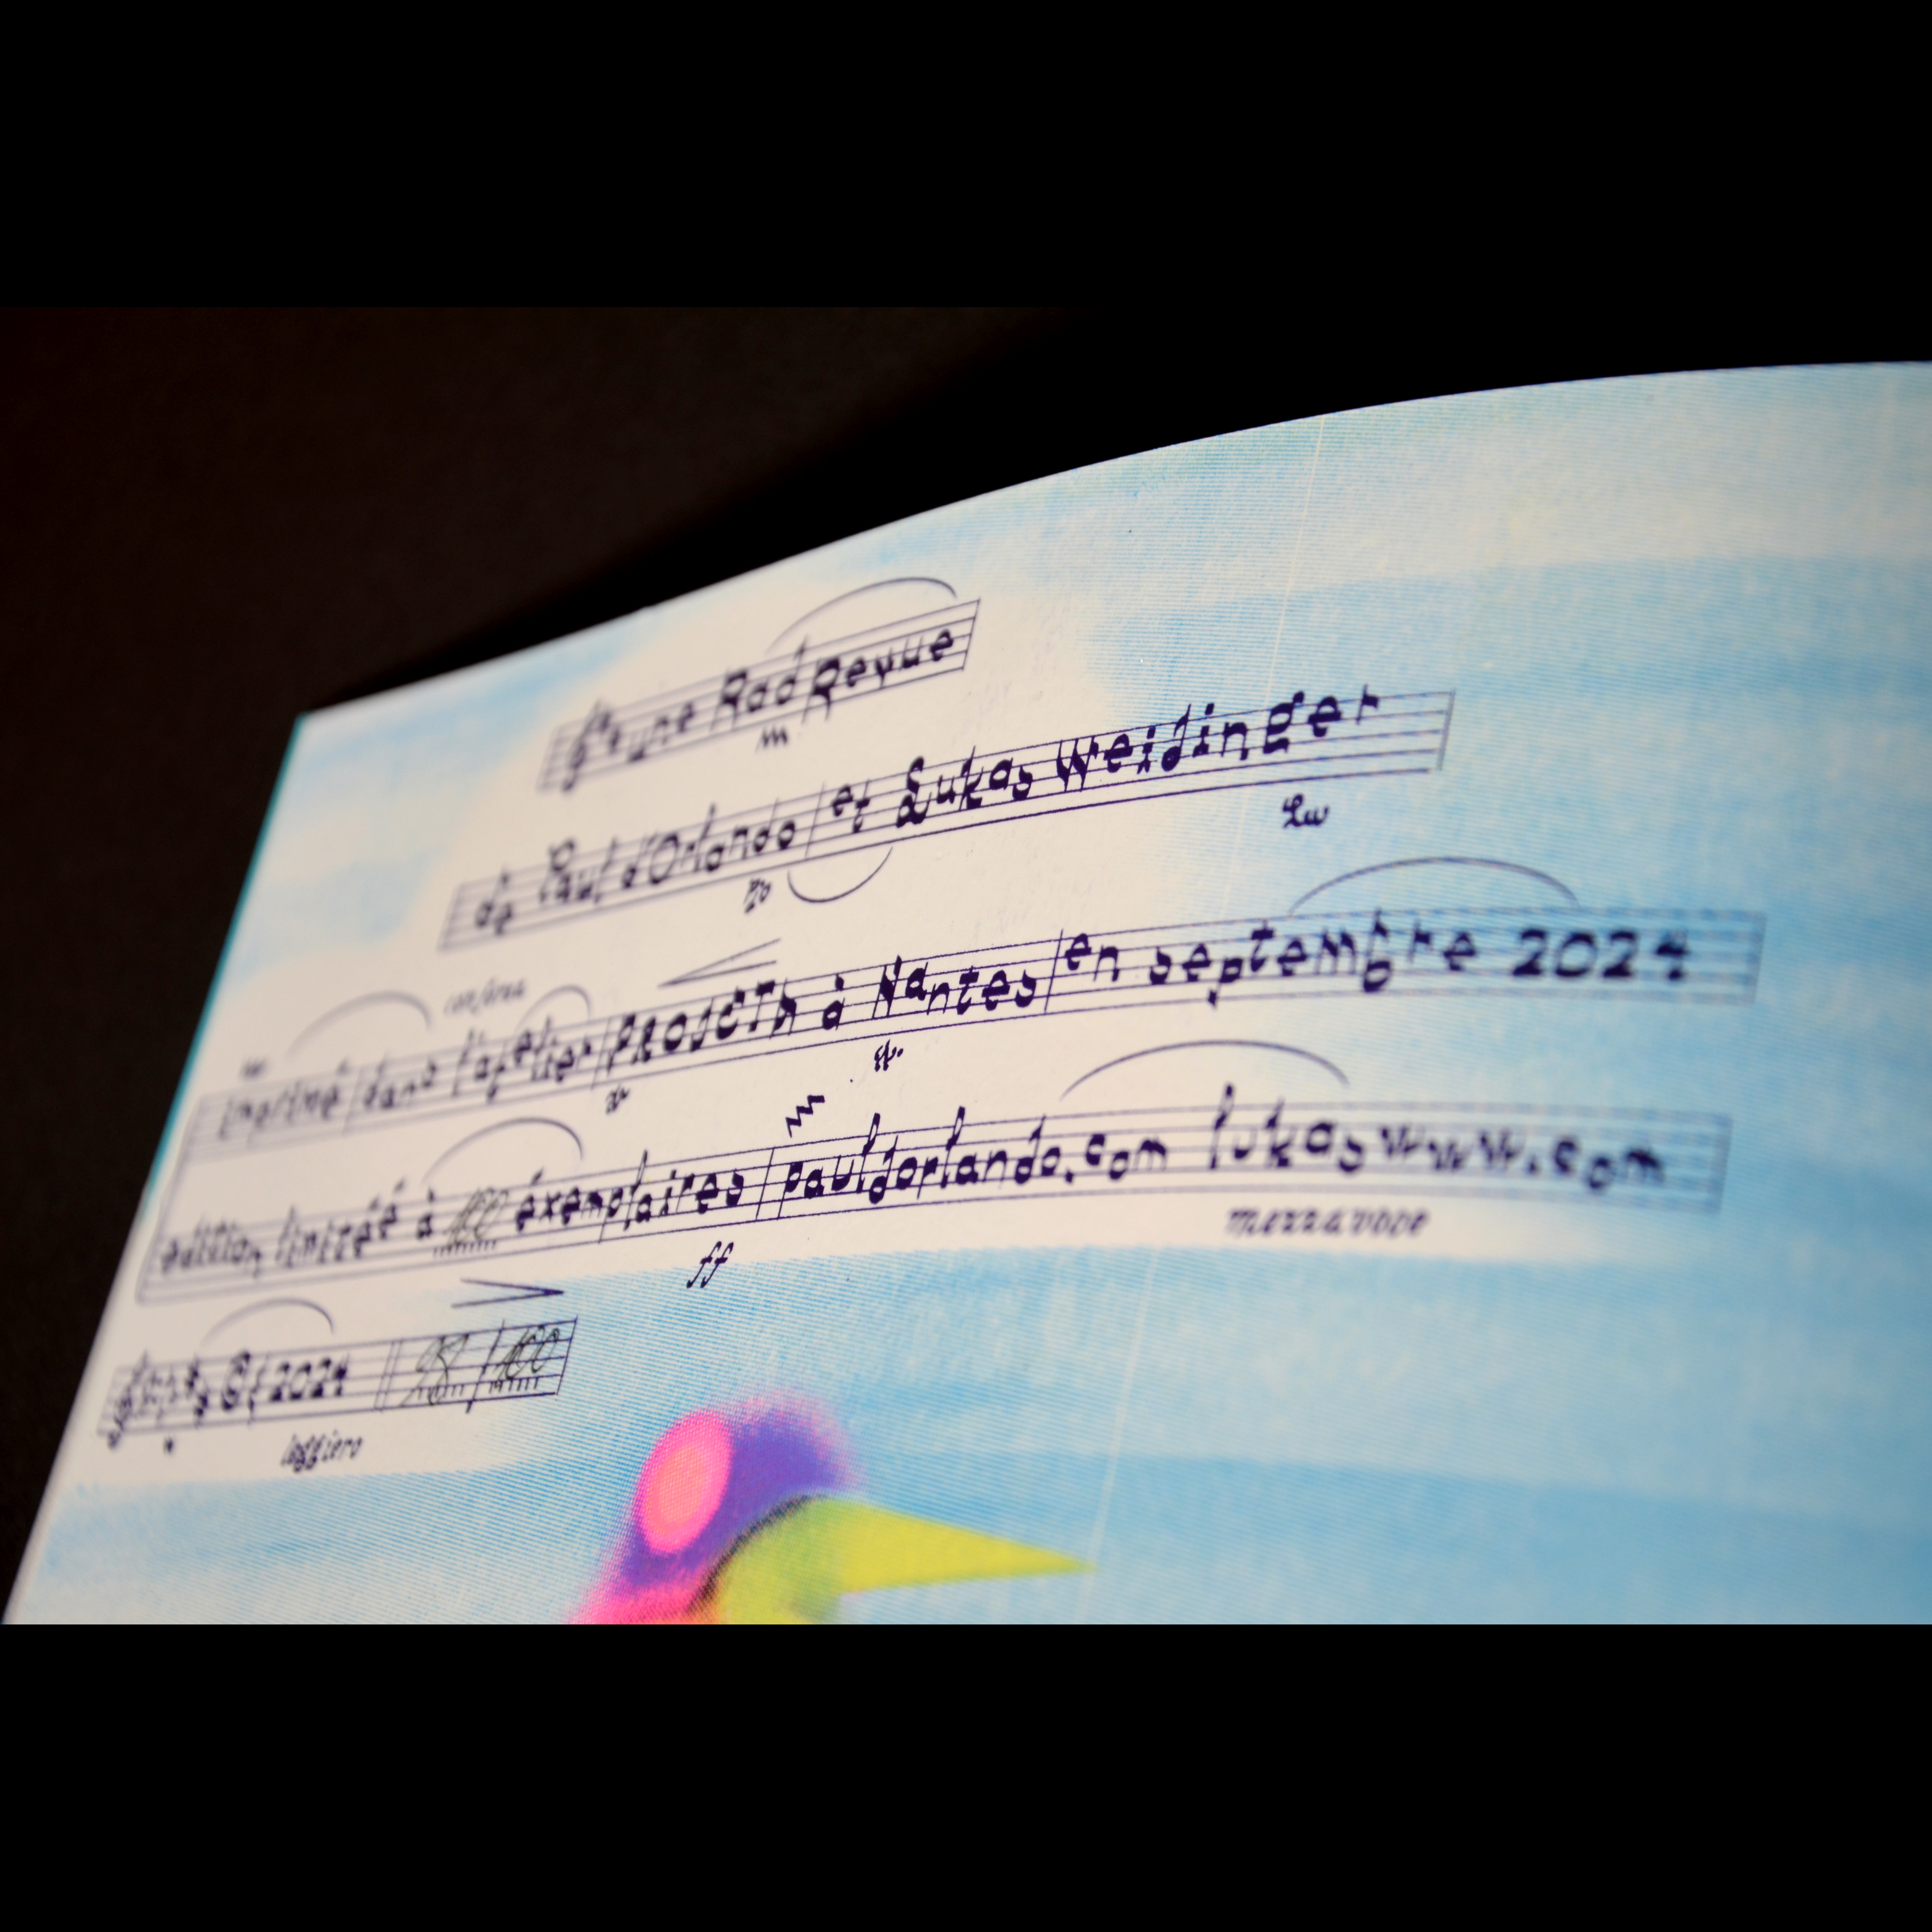 une Rad Revue
de Paul d'Orlando et Lukas Weidinger
Lw
imprimé dans l'atelier PROJETH à Nantes en septembre 2024
édition limitéé à 100 éxemplaires pauldorlando.com lukaswww.com
ff mezza voce
2024 98/100
leggiero